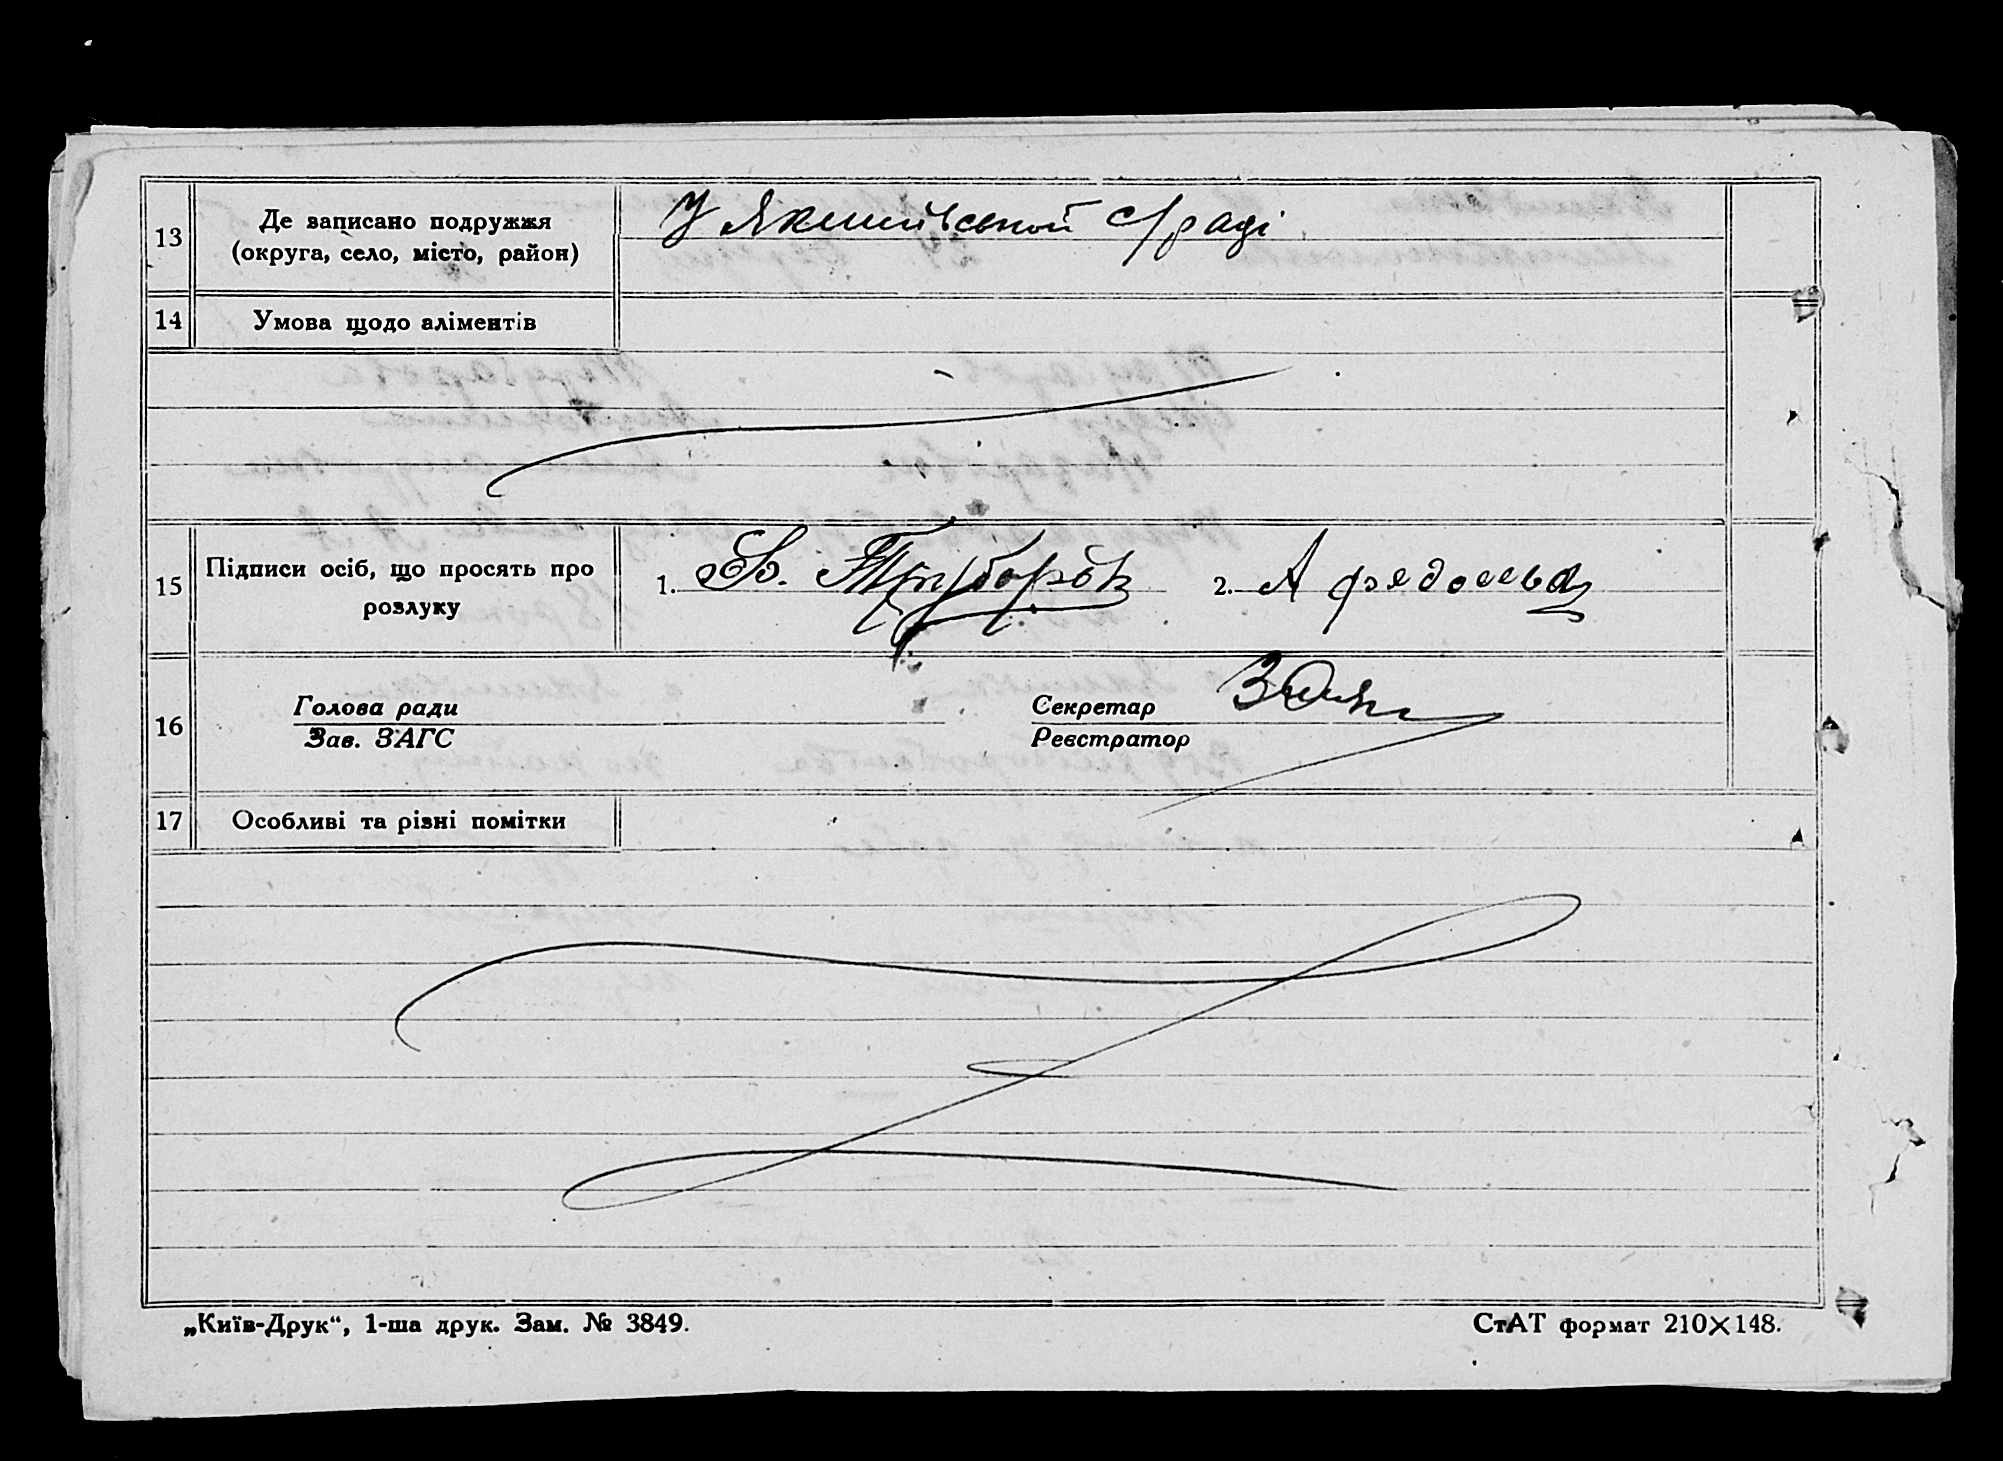 13
Де записано подружжя
(округа, село, місто, район)
У Якшиівській с/раді
14
Умова щодо аліментів
15
Підписи осіб, що просять про
розлуку
1.
2. А
16
Голова ради
Зав. ЗАГС
Секретар
Реєстратор
17
Особливі та різні помітки
„Київ-Друк“, 1-ша друк. Зам. № 3849.
СтАТ формат 210×148.